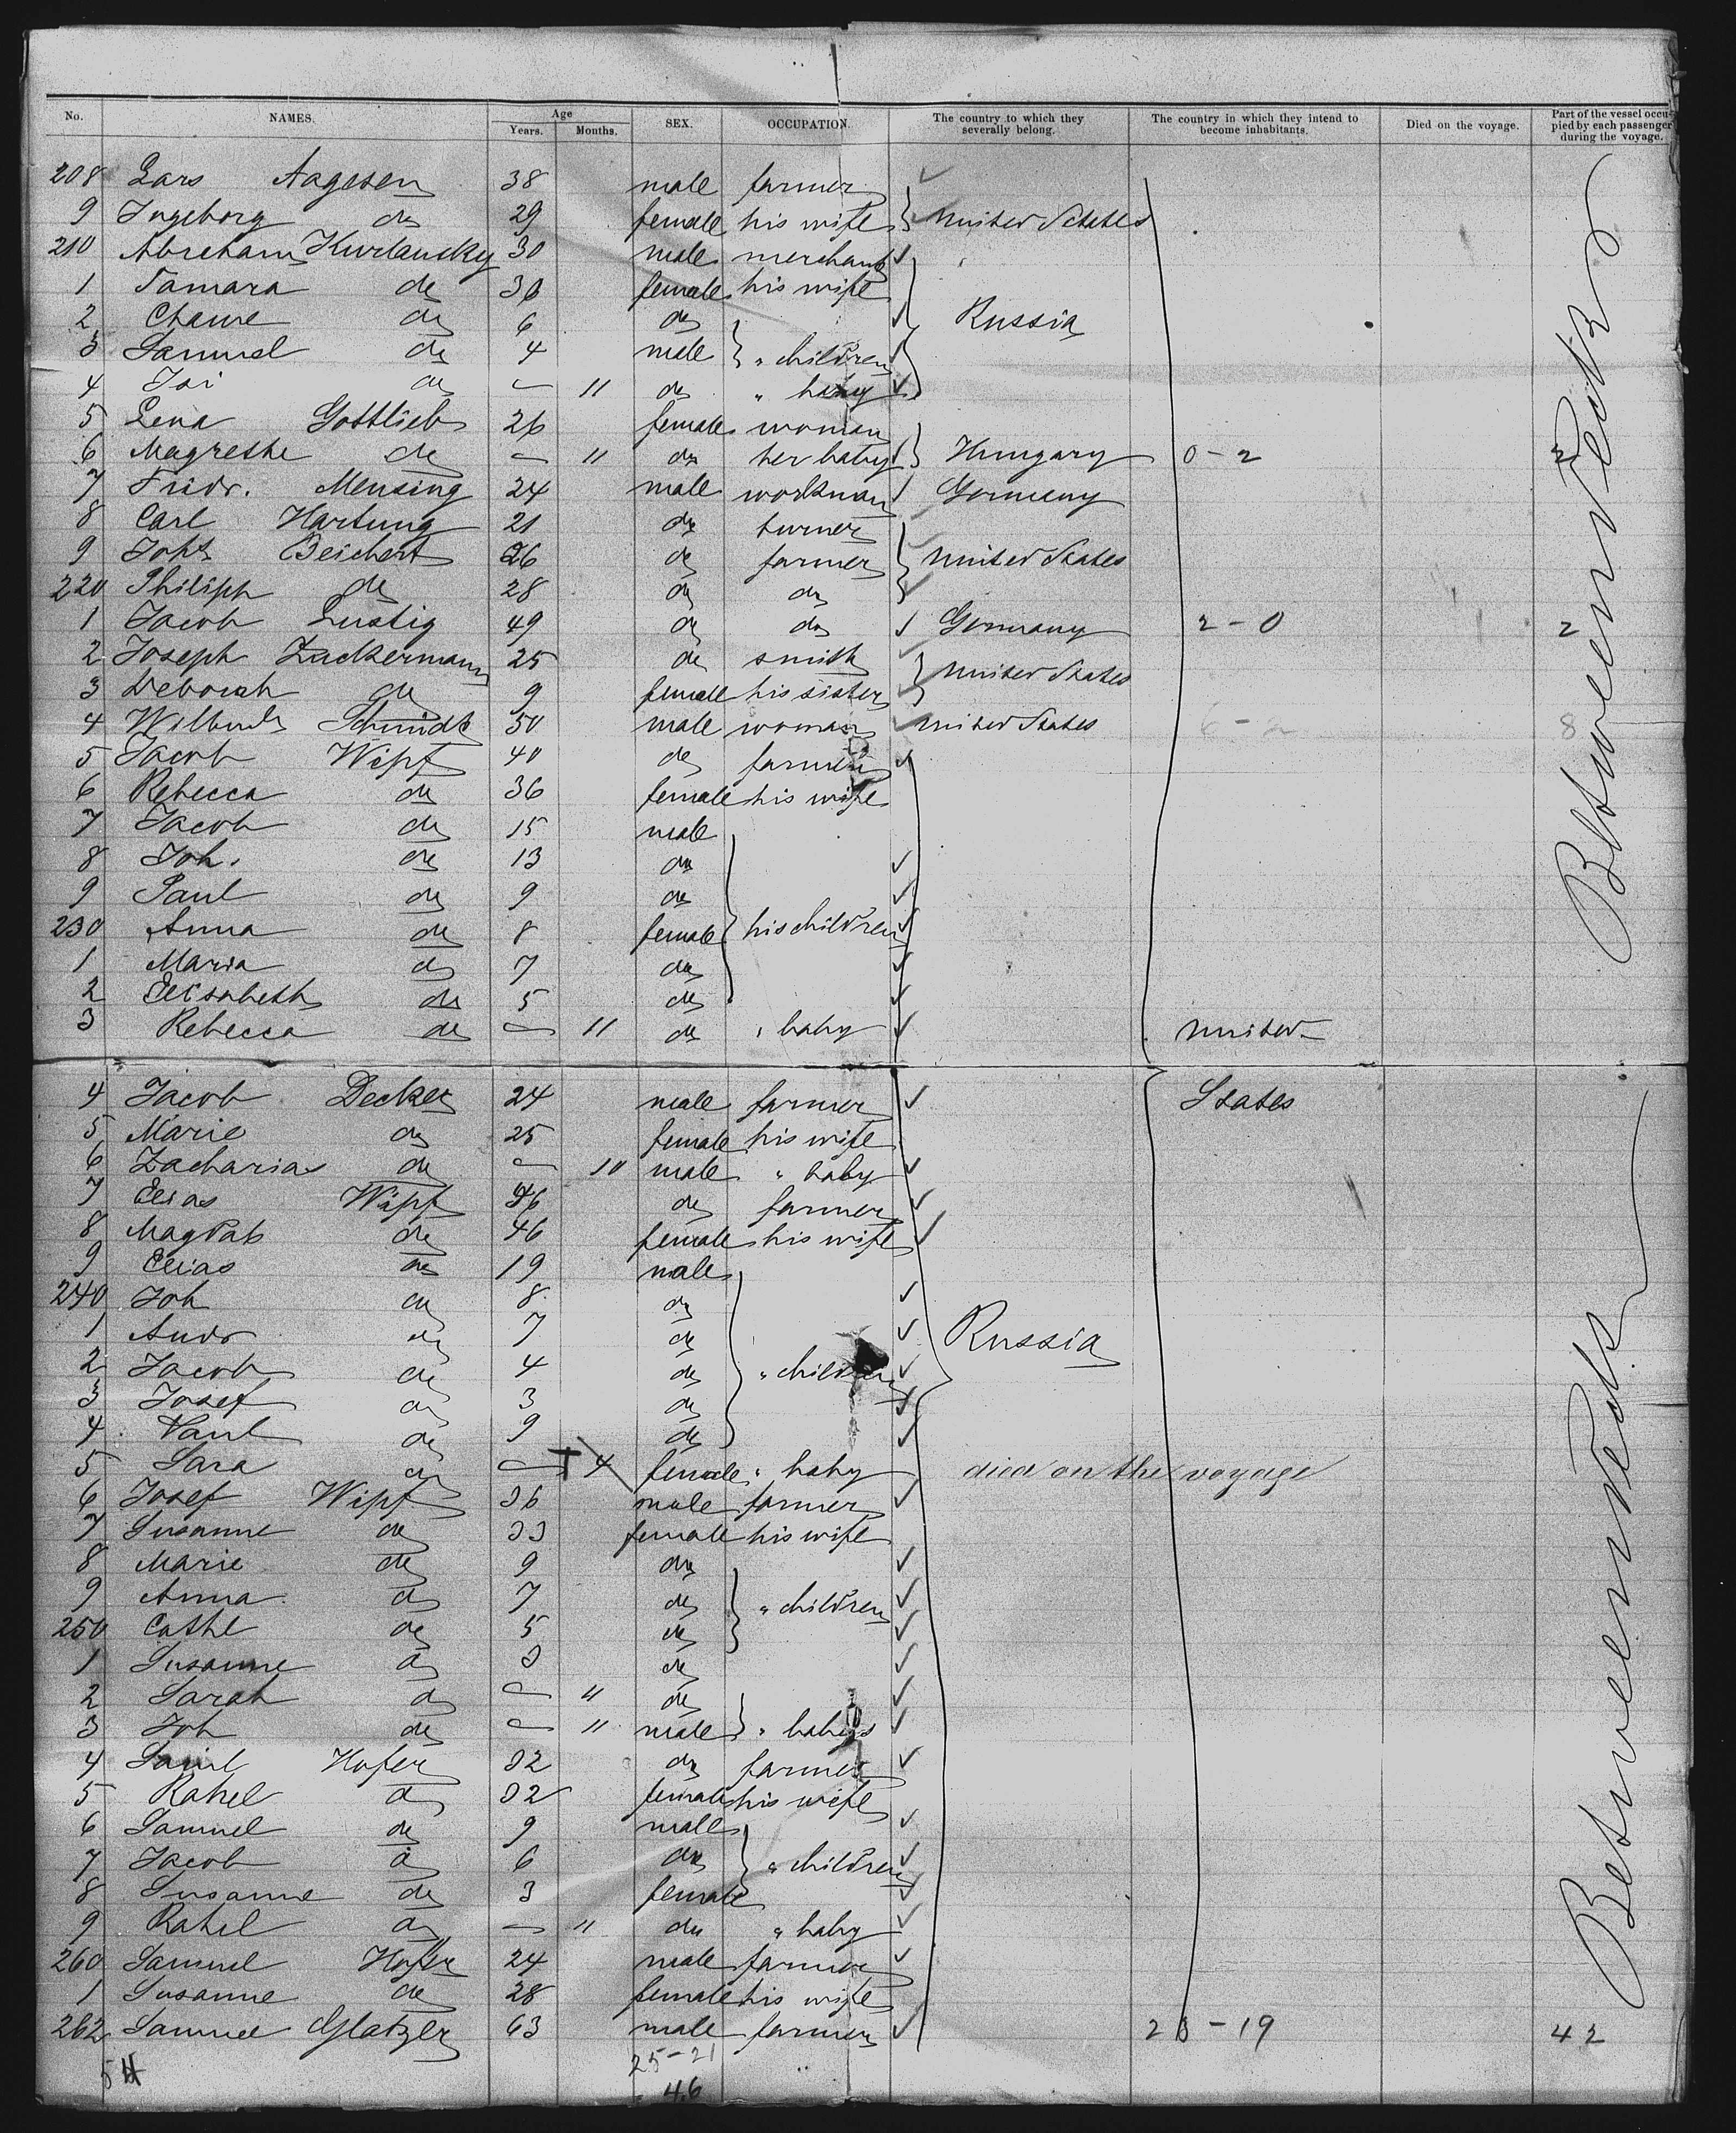 No. NAMES. Age Years. Months. SEX. OCCUPATION. The country to which they severally belong. The country in which they intend to become inhabitants. Died on the voyage. Part of the vessel occupied by each passenger during the voyage.
208 Lars Aagesen 38 male farmer
9 Ingeborg do 29 female his wife United States
210 Abraham Kurlansky 30 male merchant
1 Tamara do 30 female his wife
2 Chawe do 6 do Russia
3 Samuel do 4 male " children
4 do — 11 do " baby
5 Lena Gottlieb 26 female woman
6 Magrethe do — 11 do her baby Hungary 0-2 2
7 Friedr. Mensing 24 male workman Germany
8 Carl Hartung 21 do turner
9 Johs Beichert 26 do farmer United States
220 Philipp do 28 do do
1 Jacob Lustig 49 do do Germany 2-0 2
2 Joseph Zuckermann 25 do smith United States
3 Deborah do 9 female his sister
4 Schmidt 50 male woman United States 6-2 8
5 Jacob Wipf 40 do farmer
6 Rebecca do 36 female his wife
7 Jacob do 15 male
8 Joh. do 13 do
9 Paul do 9 do
230 Anna do 8 female his children
1 Maria do 7 do
2 Elisabeth do 5 do
3 Rebecca do — 11 do " baby United
4 Jacob Decker 24 male farmer States
5 Marie do 25 female his wife
6 Zacharias do — 10 male " baby
7 Elias Wipf 46 do farmer
8 Magdal do 46 female his wife
9 Elias do 19 male
240 Joh do 8 do
1 Andr do 7 do Russia
2 Jacob do 4 do " children
3 Josef do 3 do
4 Paul do 9 do
5 Sara do — 4 female " baby died on the voyage
6 Josef Wipf 36 male farmer
7 Susanne do 33 female his wife
8 Marie do 9 do
9 Anna do 7 do " children
250 Cathl do 5 do
1 Susanne do 3 do
2 Sarah do — 11 do
3 Joh do — 11 male " babys
4 Hofer 32 do farmer
5 Rahel do 32 female his wife
6 Samuel do 9 male
7 Jacob do 6 do " children
8 Susanne do 3 female
9 Rahel do — 11 do " baby
260 Samuel Hofer 24 male farmer
1 Susanne do 28 female his wife
262 Samuel Glatzer 63 male farmer 23-19 42
25-21
46
Between Deck
Between Deck